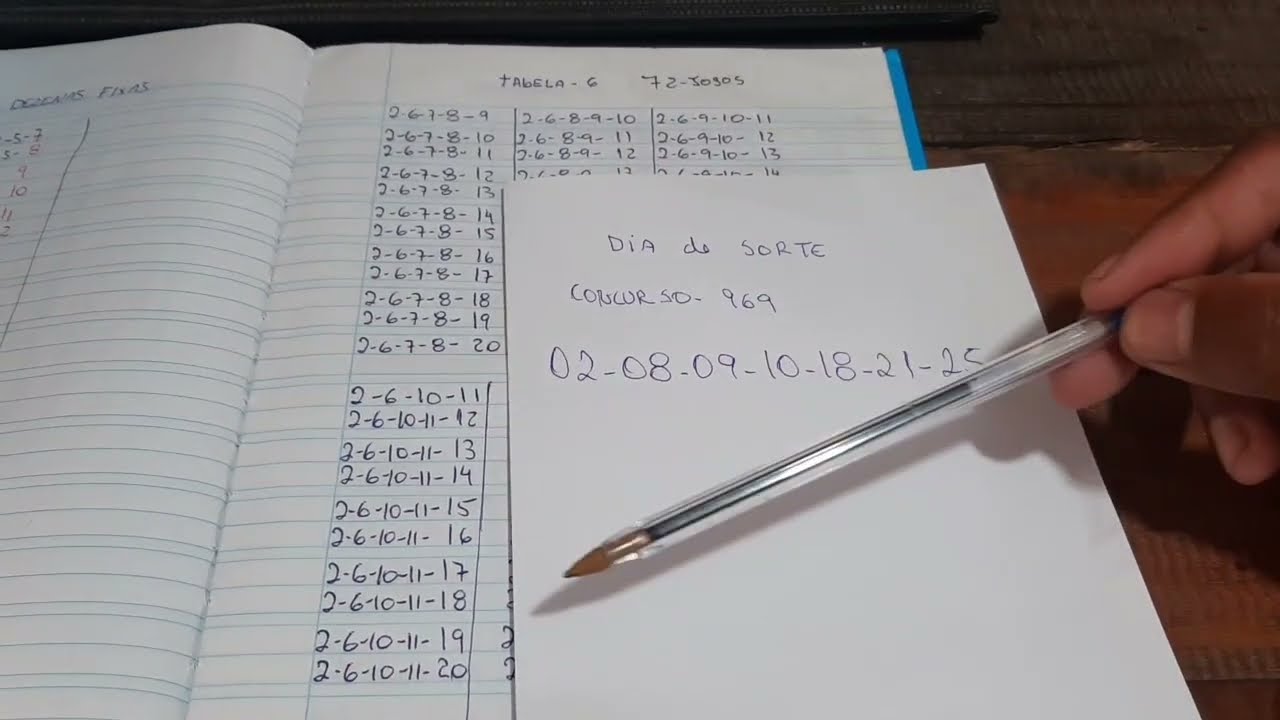 DEZENAS FIXAS
-5-7
5-8
9
10
11
2
TABELA-6 72-JOGOS
2-6-7-8-9
2-6-7-8-10
2-6-7-8-11
2-6-7-8-12
2-6-7-8-13
2-6-7-8-14
2-6-7-8-15
2-6-7-8-16
2-6-7-8-17
2-6-7-8-18
2-6-7-8-19
2-6-7-8-20
2-6-10-11
2-6-10-11-12
2-6-10-11-13
2-6-10-11-14
2-6-10-11-15
2-6-10-11-16
2-6-10-11-17
2-6-10-11-18
2-6-10-11-19
2-6-10-11-20
2-6-8-9-10
2-6-8-9-11
2-6-8-9-12
2-6-9-10-11
2-6-9-10-12
2-6-9-10-13
DIA de SORTE
CONCURSO-969
02-08-09-10-18-21-25